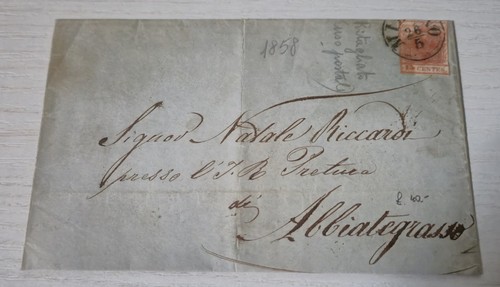 1858
Ritagliato
uso postale
MI
CENTES
Signor Natale Riccardi
presso l'I. R. Pretura
di
Abbiategrasso